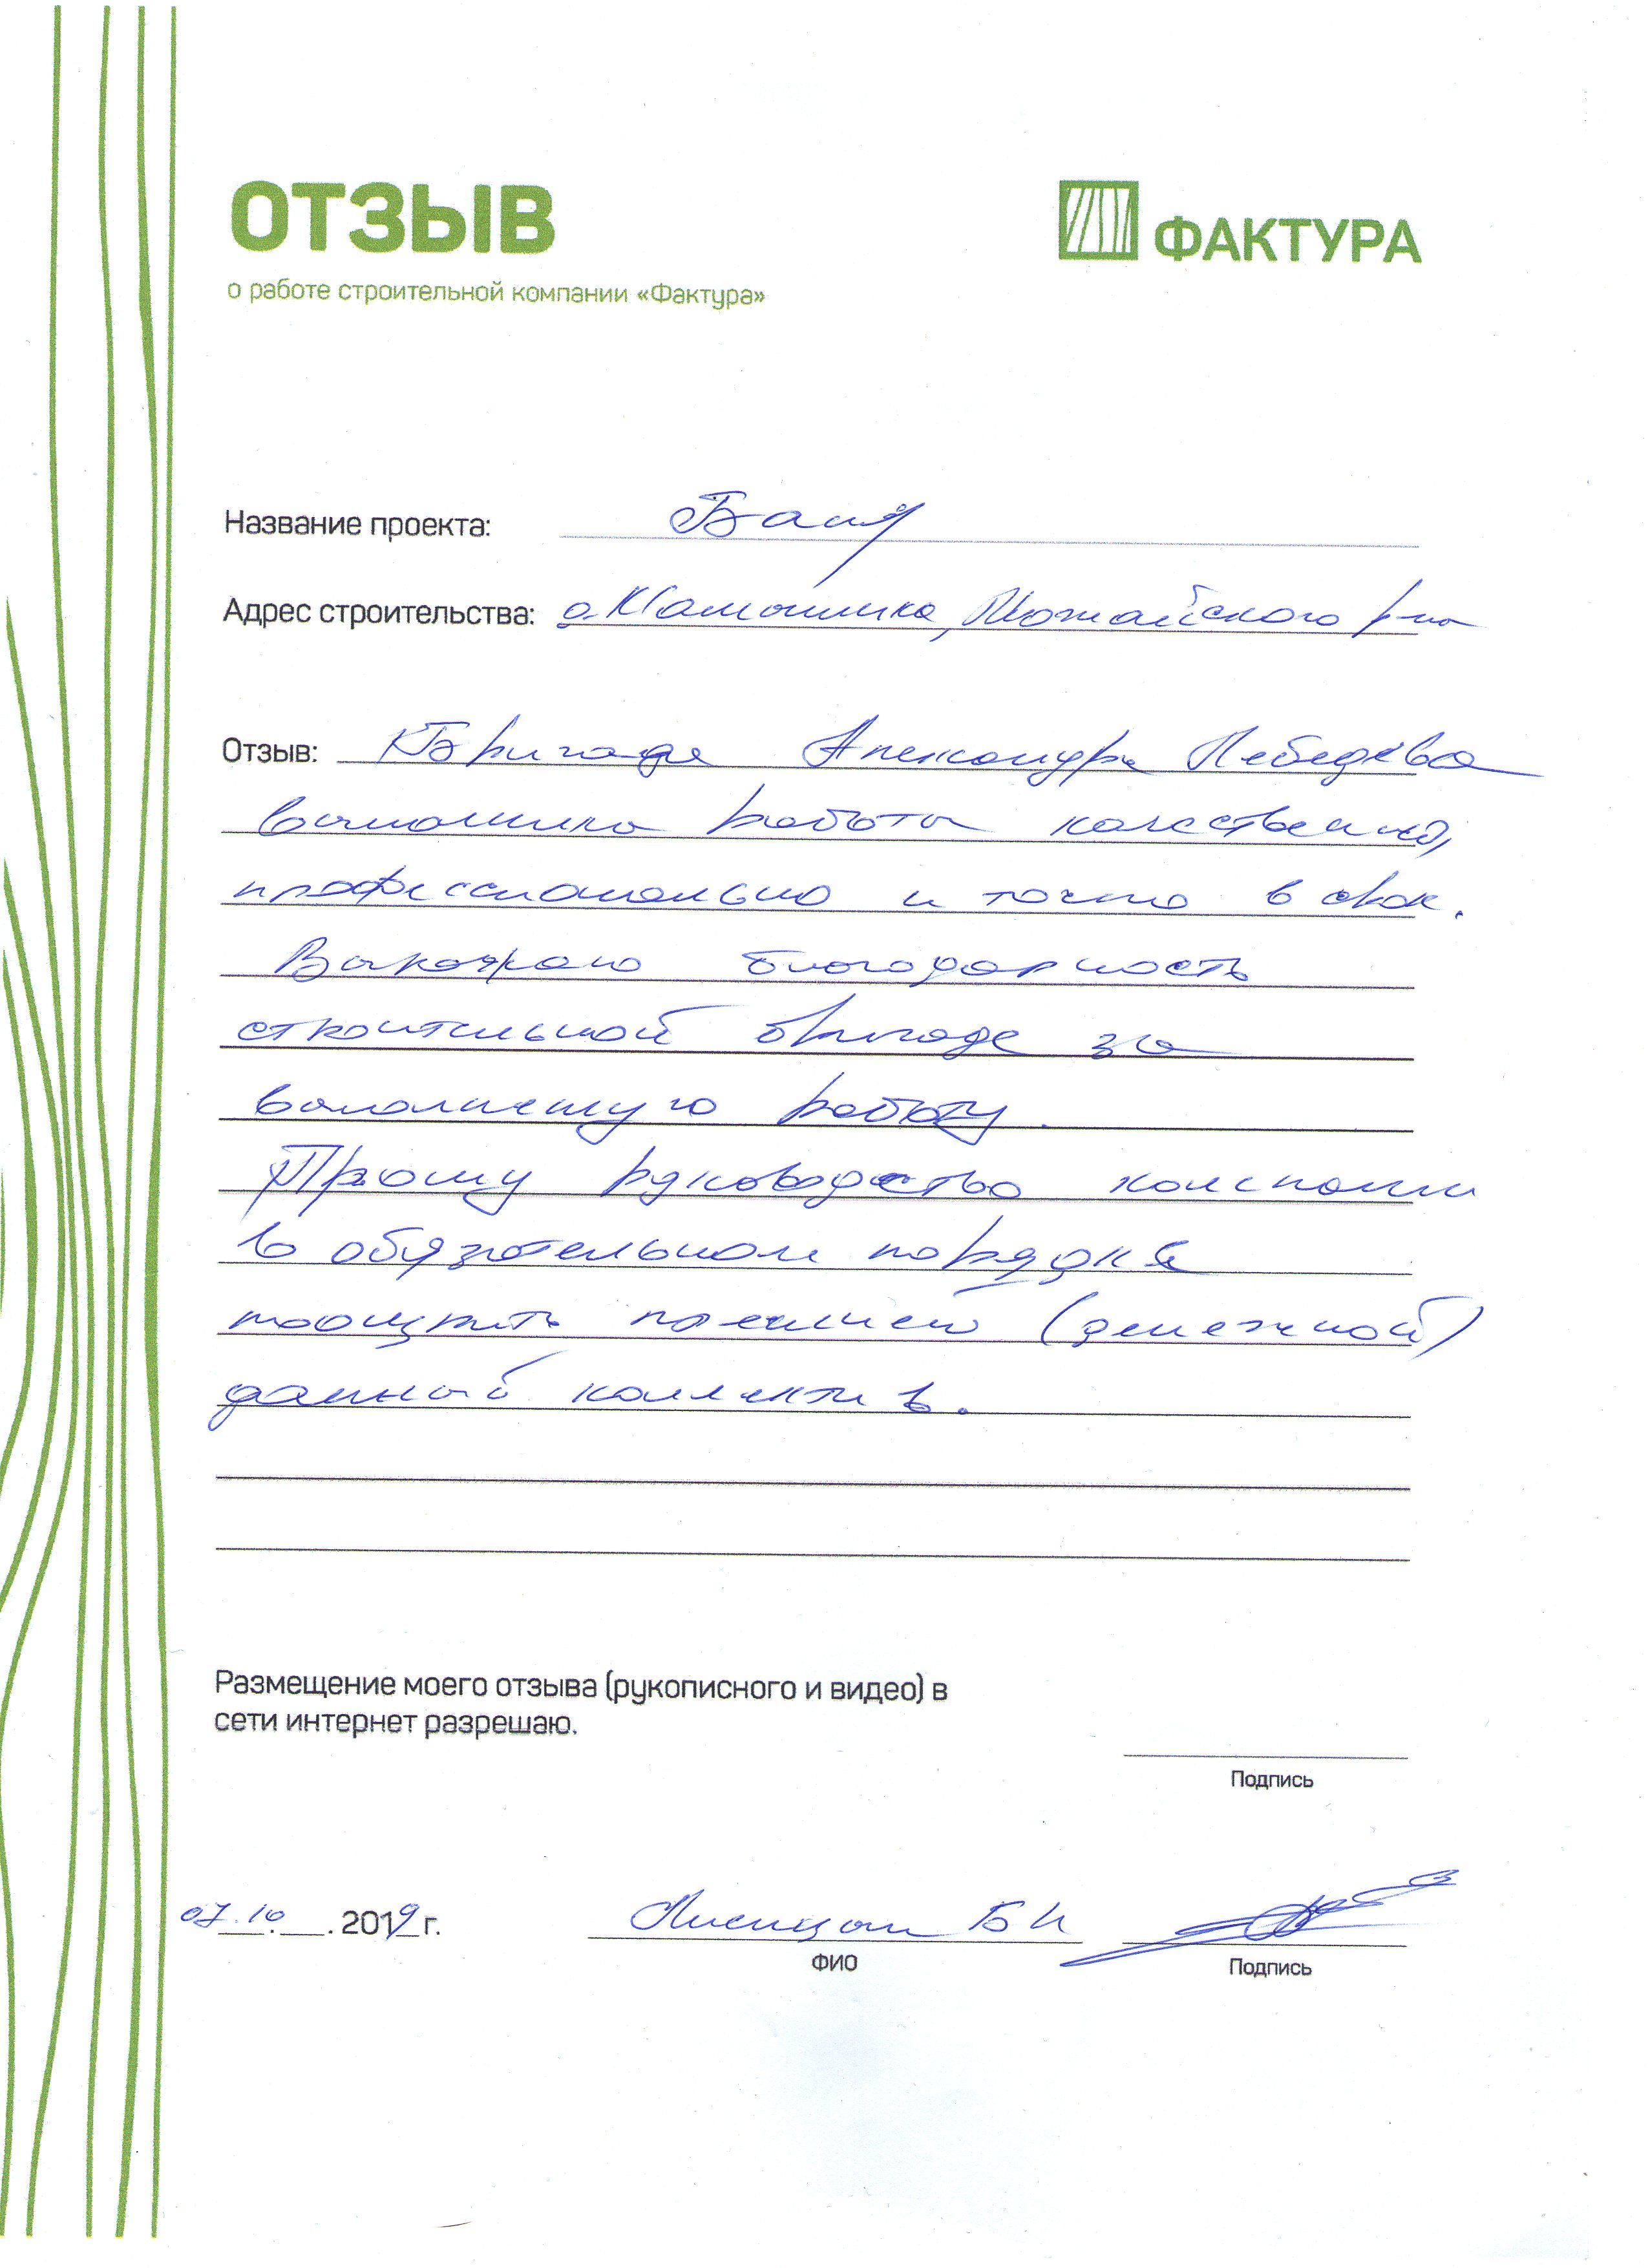 ОТЗЫВ
ФАКТУРА
о работе строительной компании «Фактура»
Название проекта: Баня
Адрес строительства: Можайского р-на
Отзыв: Бригада Александра Лебедева
выполнила работы качественно,
профессионально и точно в срок.
Выражаю благодарность
строительной бригаде за
выполненную работу.
Прошу руководство компании
в обязательном порядке
поощрить премией (денежной)
данный коллектив.
Размещение моего отзыва (рукописного и видео) в
сети интернет разрешаю.
Подпись
07.10. 2019 г. Лисицын Б И
ФИО
Подпись